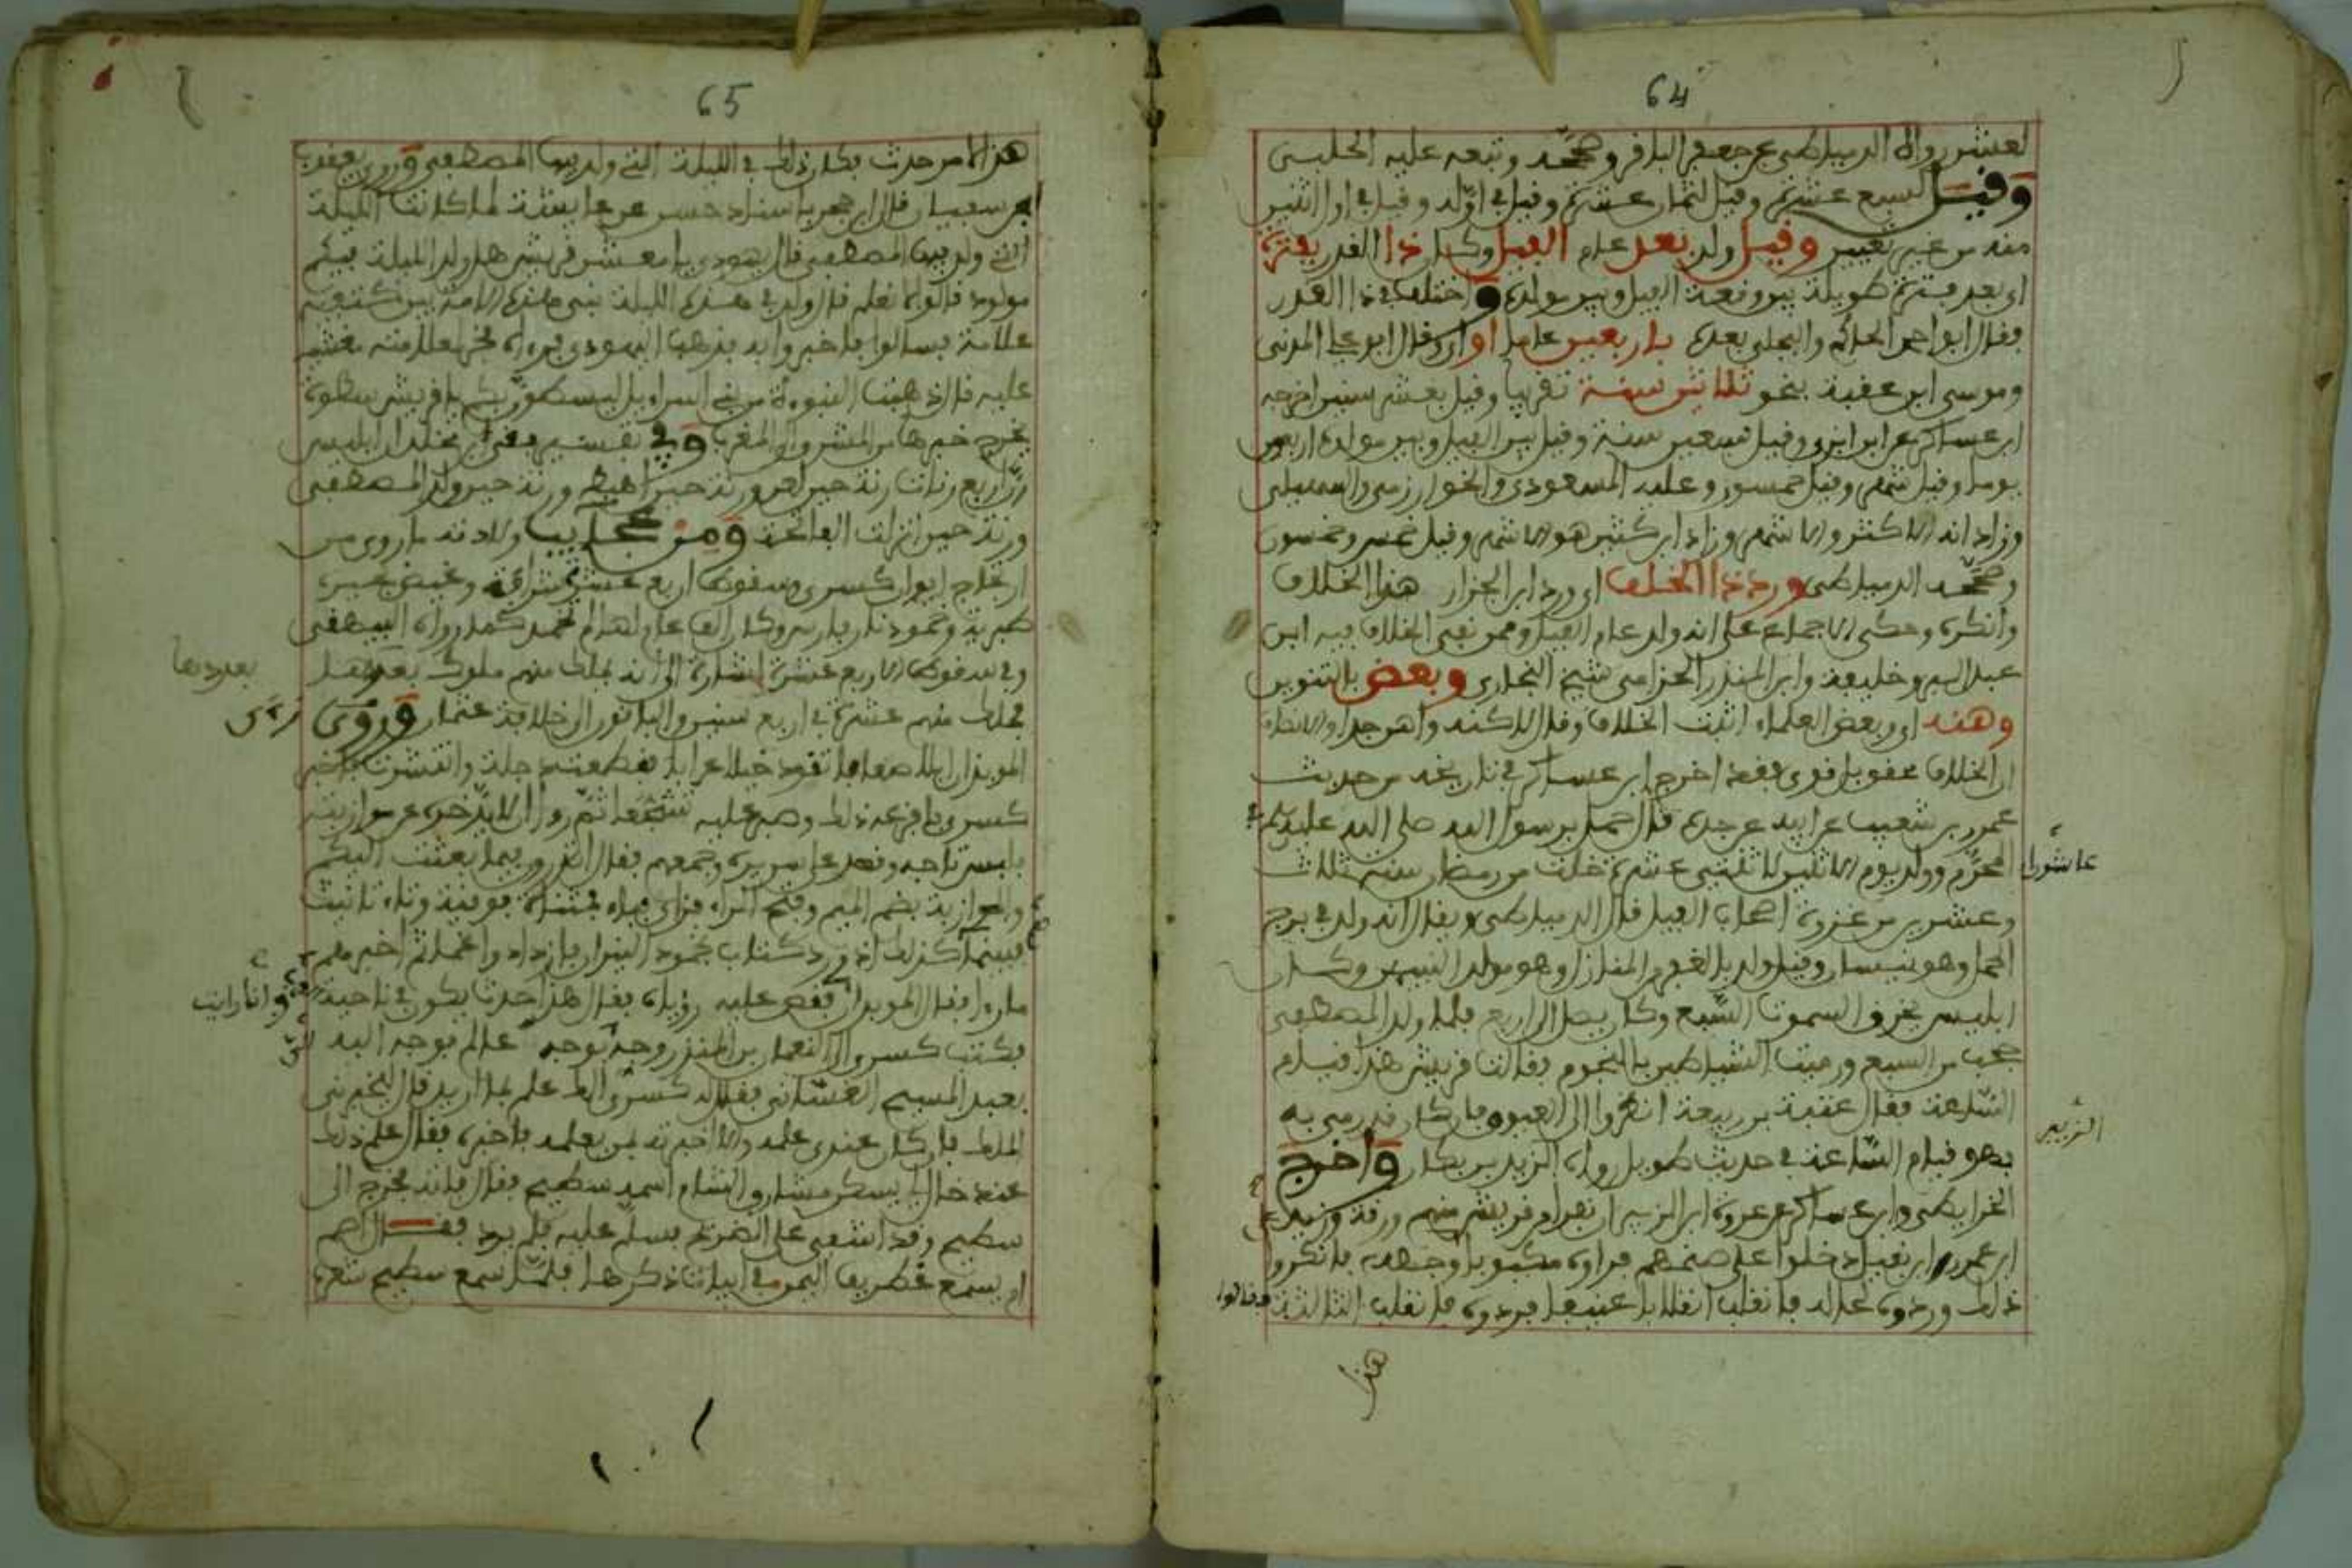 64
لعشر رواه الدمياطي عن جعفر الباقر وصححه وتبعه عليه الحلبي
وقيل لسبع عشرة وقيل لثمان عشرة وقيل في اوله وقيل في اول اثنين
منه من غير تعيين وقيل ولد بعد عام الفيل وكان ذا القدر بفترة
اي بعد فترة طويلة بين وقعة الفيل وبين مولده واختلف في ذا القدر
فقال ابو احمد الحاكم والبجلي بعده باربعين عاما او ازيد قال ابو علي المدني
وموسى ابن عقبة بنحو ثلاثين سنة تقريبا وقيل بعشر سنين اخرجه
ابن عساكر عن ابن ابزى وقيل تسعين سنة وقيل بين الفيل وبين مولده اربعون
يوما وقيل شهر وقيل خمسون وعليه المسعودي والخوارزمي والسهيلي
وزاد انه الاكثر والاشهر وزاد ابن كثير هو الاشهر وقيل خمس وخمسون
وصححه الدمياطي ورد ذا الخلف اي ورد ابن الجزار هذا الخلاف
وانكره وحكى الاجماع على انه ولد عام الفيل وممن نفى الخلاف فيه ابن
عبد البر وخليفة وابن المنذر الحزامي شيخ البخاري وبعض بالتنوين
وهنه اي وبعض العلماء اثبت الخلاف وقال لاكنه واهن جدا
ان الخلاف محفوظ قوي فقد اخرج ابن عساكر في تاريخه من حديث
عمرو بن شعيب عن ابيه عن جده قال حمل برسول الله صلى الله عليه وسلم في
عاشوراء المحرم وولد يوم الاثنين لاثنتي عشرة خلت من رمضان سنة ثلاث
وعشرين من غزوة اصحاب الفيل قال الدمياطي ويقال انه ولد في برج
الحمل وهو نيسان وقيل ولد بالغفر من المنازل وهو مولد النبيين وكان
ابليس يخرق السموات السبع وكان يصل الى اربع فلما ولد المصطفى
حجب من السبع ورميت الشياطين بالنجوم فقالت قريش هذا قيام
الساعة فقال عتبة بن ربيعة انظروا الى العيوق فان كان قد رمي به
فهو قيام الساعة في حديث طويل رواه الزبير بن بكار واخرج
الزبير
الخرايطي وابن عساكر عن عروة ابن الزبير ان نفرا من قريش منهم ورقة وزيد
ابن عمرو ابن نفيل دخلوا على صنم لهم فراوه مكبوبا على وجهه فانكروا
ذلك وردوه لحاله فانقلب انقلابا عنيفا فردوه فانقلب الثالثة فقالوا
هذا
65
هذا لامر حدث فكان ذلك في الليلة التي ولد فيها المصطفى وروى يعقوب
بن سفيان قال ابن حجر باسناد حسن عن عايشة لما كانت الليلة
التي ولد فيها المصطفى قال يهودي يا معشر قريش هل ولد الليلة فيكم
مولود قالوا لا نعلم قال ولد في هذه الليلة نبي هذه الامة بين كتفيه
علامة فسالوا فاخبروا به فذهب اليهودي فراه فخر لعلامته مغشيا
عليه قال ذهبت النبوءة من بني اسراءيل ليسطون بكم يا قريش سطوة
يخرج خبرها من المشرق والمغرب وفي تفسير بقي بن مخلد ان ابليس
رن اربع رنات رنة حين لعن ورنة حين اهبط ورنة حين ولد المصطفى
ورنة حين انزلت الفاتحة ومن عجايب ولادته ما روي من
ارتجاج ايوان كسرى وسقوط اربع عشرة شرافة وغيض بحيرة
طبرية وخمود نار فارس وكان الف عام لم تخمد كما رواه البيهقي
وفي سقوط الاربع عشرة اشارة الى انه يملك منهم ملوك بعددها
بعددها
فملك منهم عشرة في اربع سنين والباقون الى خلافة عثمان وروى
الموبذان ابلا صعابا تقود خيلا عرابا فقطعت دجلة وانتشرت
كسرى فافزعه ذلك وصبر عليه تشجعا ثم رءا ان لا يدخره عن موازبته
فلبس تاجه وقعد على سريره وجمعهم فقال اتدرون فيما بعثت اليكم
والموازبة بضم الميم وفتح الراء فزاي فباء بمثناة فوقية وتاء تانيث
فبينما كذلك اذ ورد كتاب بخمود النيران فازداد وا غما ثم اخبرهم
ما رءا فقال الموبذان وانا رايت فقص عليه رؤياه فقال هذا حدث يكون في ناحية
فكتب كسرى الى النعمان بن المنذر وجه بوجه عالم فوجه اليه
بعبد المسيح الغساني فقال له كسرى الك علم بما اريد قال ليخبرني
الملك فان كان عندي علمه والا اخبرته بمن يعلمه فاخبره فقال علم ذلك
عند خال لي يسكن مشارق الشام اسمه سطيح فقال فاته فخرج الى
سطيح وقد اشفى على الضريح فسلم عليه فلم يرد فقال اصم
ام يسمع غطريف اليمن في ابيات ذكرها فلما سمع سطيح شعره